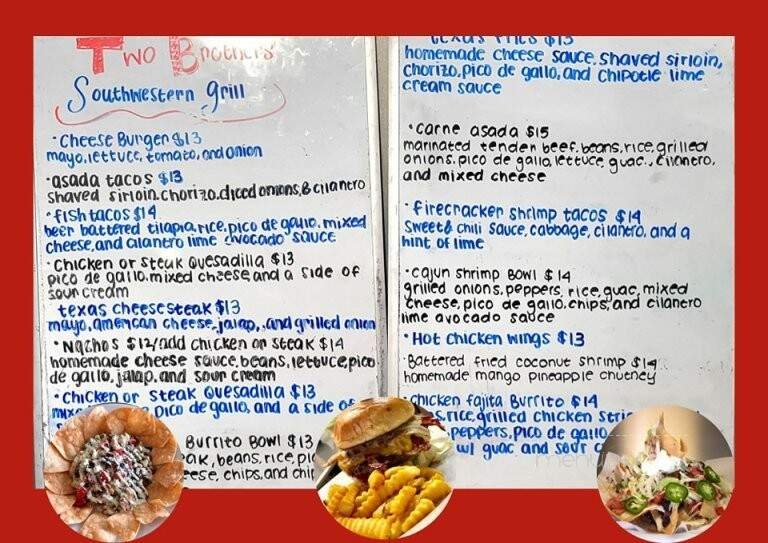 Two Brothers'
Southwestern Grill
·Cheese Burger $13
mayo, lettuce, tomato, and onion
·asada tacos $13
shaved sirloin, chorizo, diced onions, & cilantro
·fish tacos $14
beer battered tilapia, rice, pico de gallo, mixed
cheese, and cilantro lime avocado sauce
·Chicken or Steak Quesadilla $13
pico de gallo, mixed cheese, and a side of
sour cream
texas cheesesteak $13
mayo, american cheese, jalap., and grilled onion
·Nachos $12/add chicken or steak $14
homemade cheese sauce, beans, lettuce, pico
de gallo, jalap. and sour cream
·Chicken or Steak Quesadilla $13
pico de gallo, and a side of
Burrito Bowl $13
beans, rice,
chips, and
texas fries $13
homemade cheese sauce, shaved sirloin,
chorizo, pico de gallo, and chipotle lime
cream sauce
·carne asada $15
marinated tender beef, beans, rice, grilled
onions, pico de gallo, lettuce, guac., cilantro,
and mixed cheese
·firecracker shrimp tacos $14
sweet & chili sauce, cabbage, cilantro, and a
hint of lime
·cajun shrimp bowl $14
grilled onions, peppers, rice, guac, mixed
cheese, pico de gallo, chips, and cilantro
lime avocado sauce
·Hot chicken wings $13
·Battered fried coconut shrimp $14
homemade mango pineapple chutney
chicken fajita Burrito $14
rice, grilled chicken
peppers, pico de gallo
guac and sour